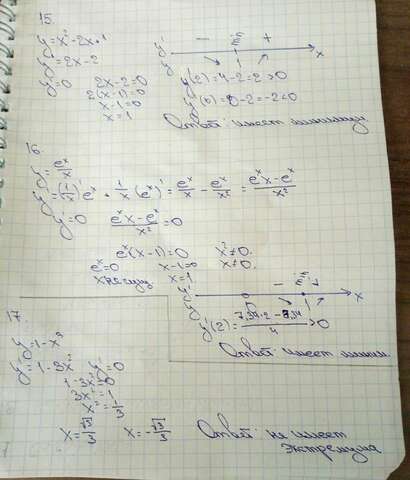 15.
y=x²-2x+1
y'=2x-2
y'=0 2x-2=0
2(x-1)=0
x-1=0
x=1
y' - min +
y 1 x
y'(2)=4-2=2>0
y'(0)=0-2=-2<0
Ответ: имеет минимум.
16.
y=eˣ/x
y'=(1/x)'eˣ + 1/x (eˣ)' = eˣ/x - eˣ/x² = (eˣx-eˣ)/x²
y'=0 (eˣx-eˣ)/x²=0
eˣ(x-1)=0 x²≠0.
eˣ=0 x-1=0 x≠0.
x=1
y' - min +
y 0 1 x
>0
Ответ: имеет миним.
17.
y=1-x²
y'=1-3x² y'=0
1-3x²=0
3x²=1
x²=1/3
x=√3/3 x=-√3/3
Ответ: не имеет
экстремума